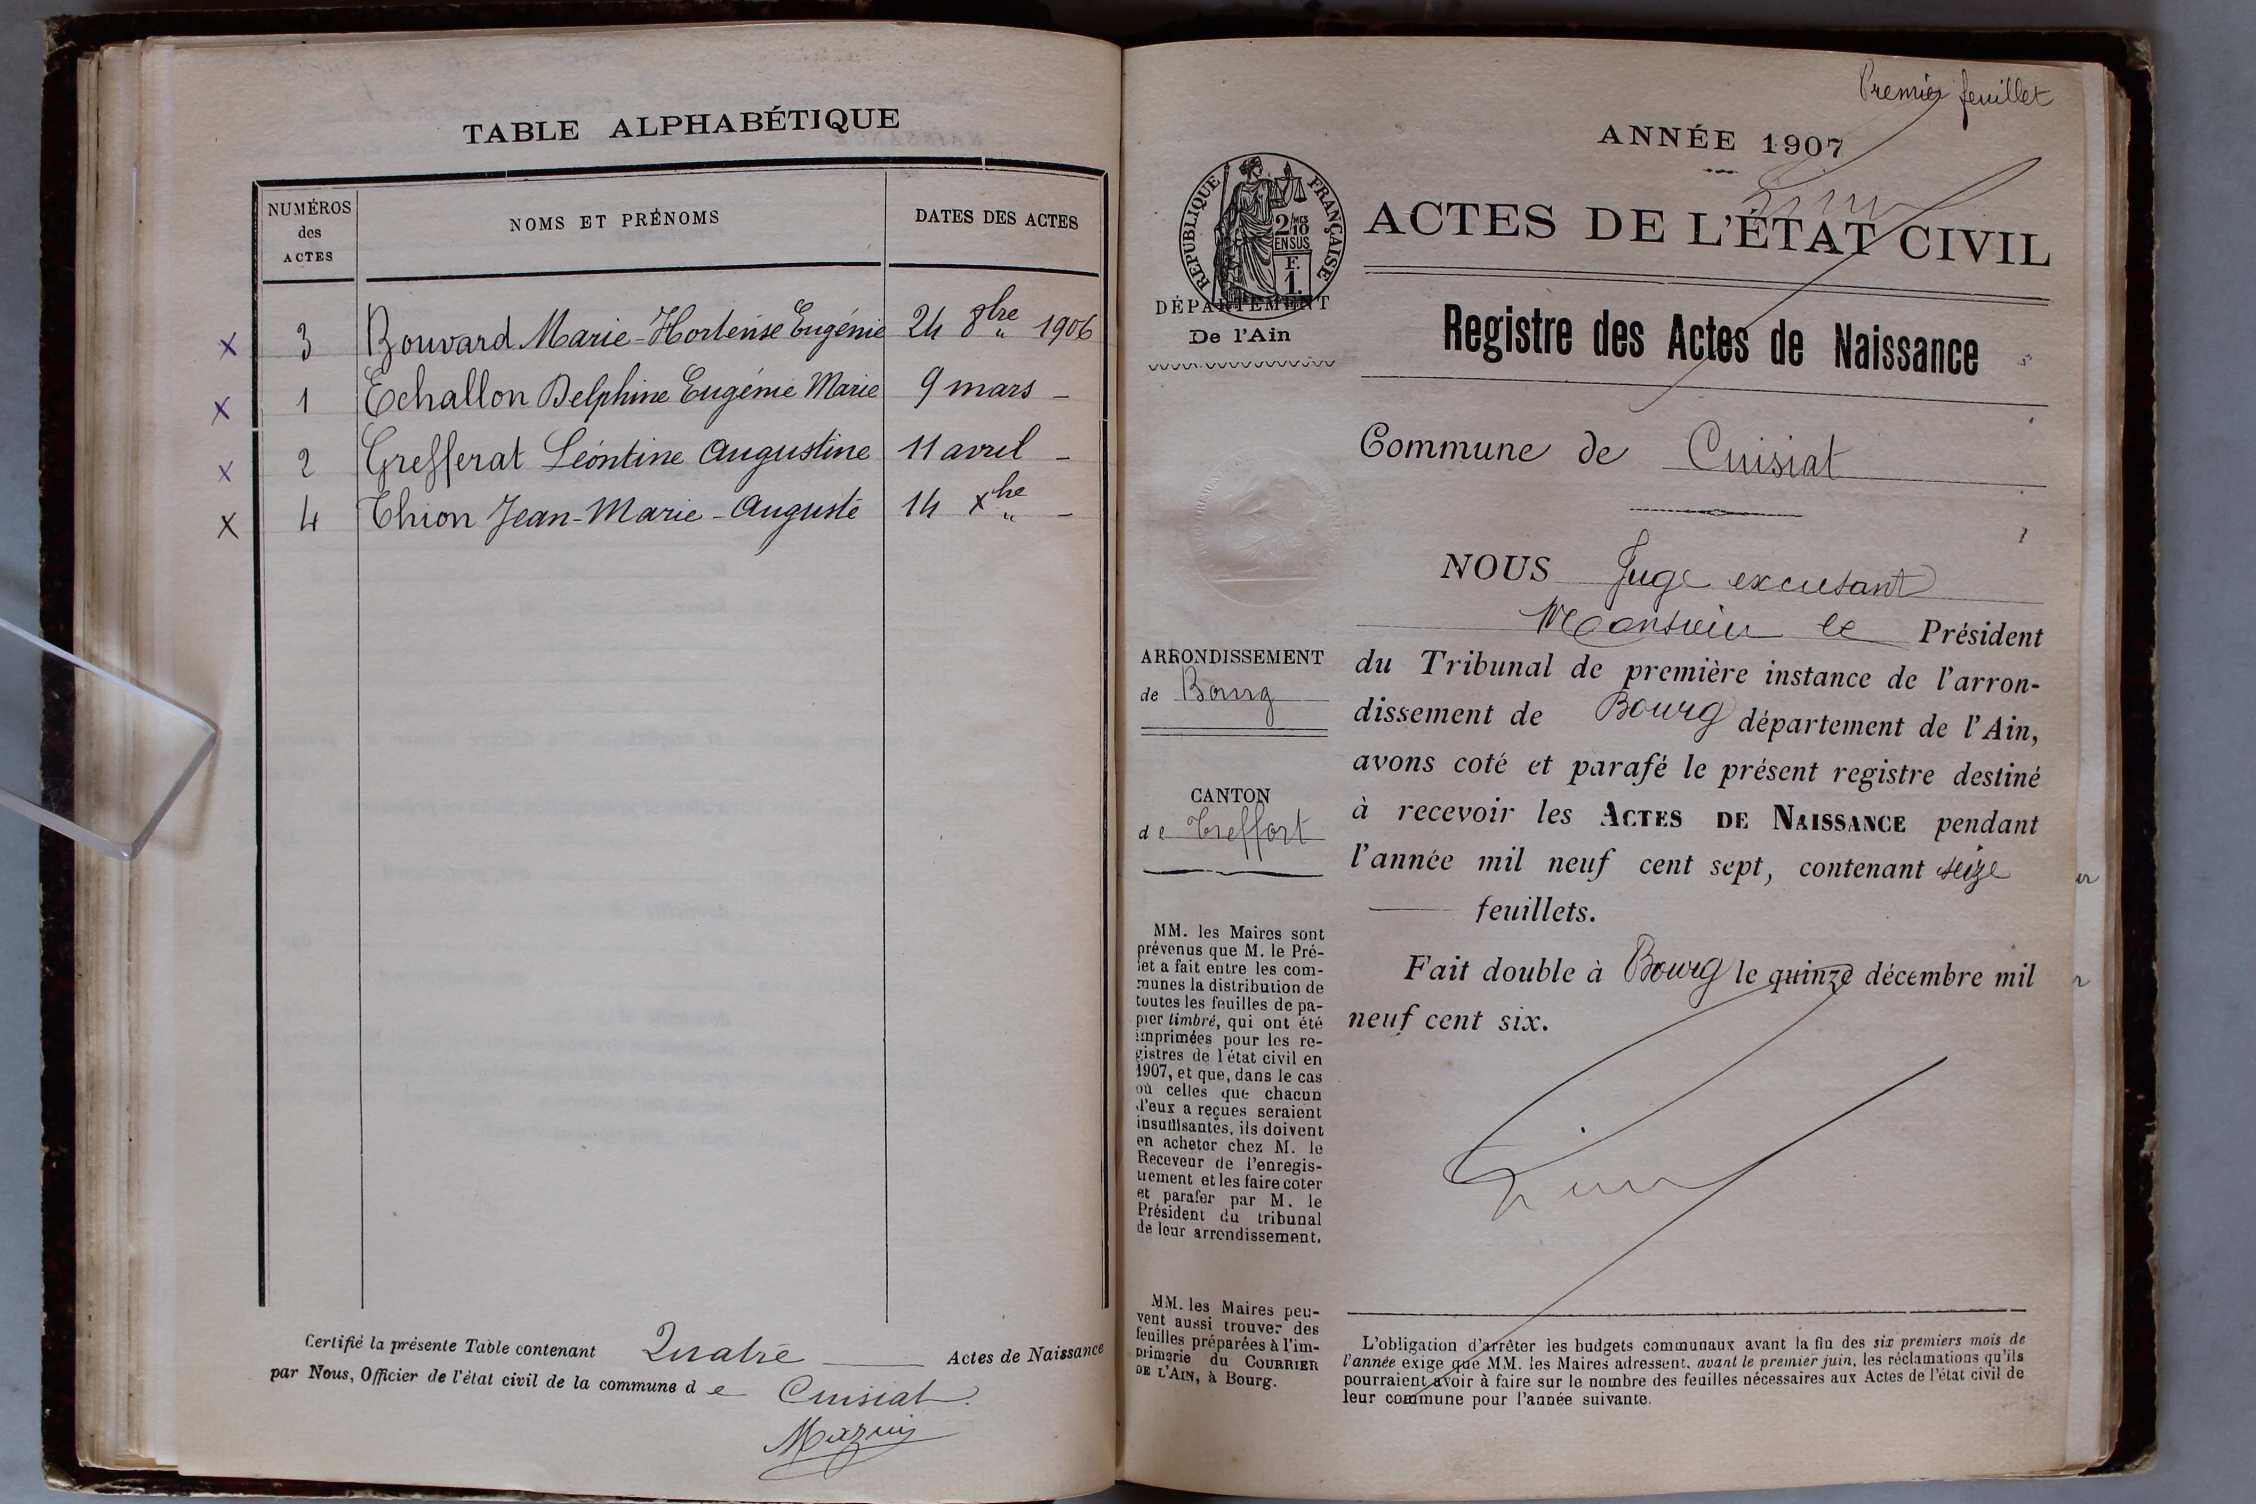 TABLE ALPHABÉTIQUE
NUMÉROS
des
ACTES
NOMS ET PRÉNOMS
DATES DES ACTES
x 3 Bouvard Marie-Hortense Eugénie 24 8bre " 1906
x 1 Echallon Delphine Eugénie Marie 9 mars -
x 2 Grefferat Léontine Augustine 11 avril -
x 4 Thion Jean-Marie-Auguste 14 xbre " -
Certifié la présente Table contenant Quatre Actes de Naissance
par Nous, Officier de l'état civil de la commune de Cuisiat.
Premier feuillet
ANNÉE 1907
RÉPUBLIQUE FRANÇAISE
2/10MES
EN SUS
F.
1.
ACTES DE L'ÉTAT CIVIL
DÉPARTEMENT
De l'Ain
Registre des Actes de Naissance
Commune de Cuisiat
NOUS Juge excusant
Monsieur le Président
du Tribunal de première instance de l'arron-
dissement de Bourg département de l'Ain,
avons coté et parafé le présent registre destiné
à recevoir les ACTES DE NAISSANCE pendant
l'année mil neuf cent sept, contenant seize
feuillets.
Fait double à Bourg le quinze décembre mil
neuf cent six.
ARRONDISSEMENT
de Bourg
CANTON
de Treffort
MM. les Maires sont
prévenus que M. le Pré-
fet a fait entre les com-
munes la distribution de
toutes les feuilles de pa-
pier timbré, qui ont été
imprimées pour les re-
gistres de l'état civil en
1907, et que, dans le cas
où celles que chacun
d'eux a reçues seraient
insuffisantes, ils doivent
en acheter chez M. le
Receveur de l'enregis-
trement et les faire coter
et parafer par M. le
Président du tribunal
de leur arrondissement.
MM. les Maires peu-
vent aussi trouver des
feuilles préparées à l'im-
primerie du COURRIER
DE L'AIN, à Bourg.
L'obligation d'arrêter les budgets communaux avant la fin des six premiers mois de
l'année exige que MM. les Maires adressent, avant le premier juin, les réclamations qu'ils
pourraient avoir à faire sur le nombre des feuilles nécessaires aux Actes de l'état civil de
leur commune pour l'année suivante.